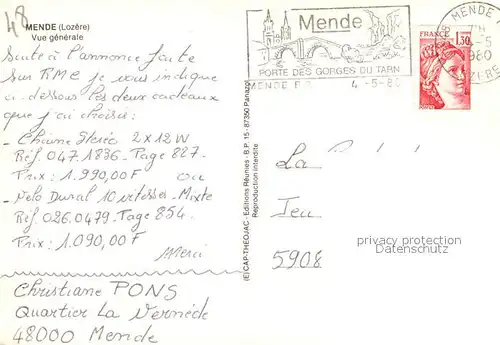 48
MENDE (Lozère)
Vue générale
Suite à l'annonce faite
sur RMC je vous indique
ci dessous les deux cadeaux
que j'ai choisis:
- Chaine Stéréo 2x12W
Réf. 047.1836 - Page 827.
Prix: 1.990,00F ou
- Vélo Dural 10 vitesses - Mixte
Réf. 026.0479 - Page 854.
Prix: 1.090,00F
Merci
Christiane PONS
Quartier La Vernède
48000 Mende
(E) CAP-THEOJAC - Editions Réunies - B.P. 15 - 87350 Panazol
Reproduction interdite
Mende
PORTE DES GORGES DU TARN
MENDE
4-5-80
FRANCE
1,30
MENDE
1980
LOZERE
La
Jeu
5908
privacy protection
Datenschutz